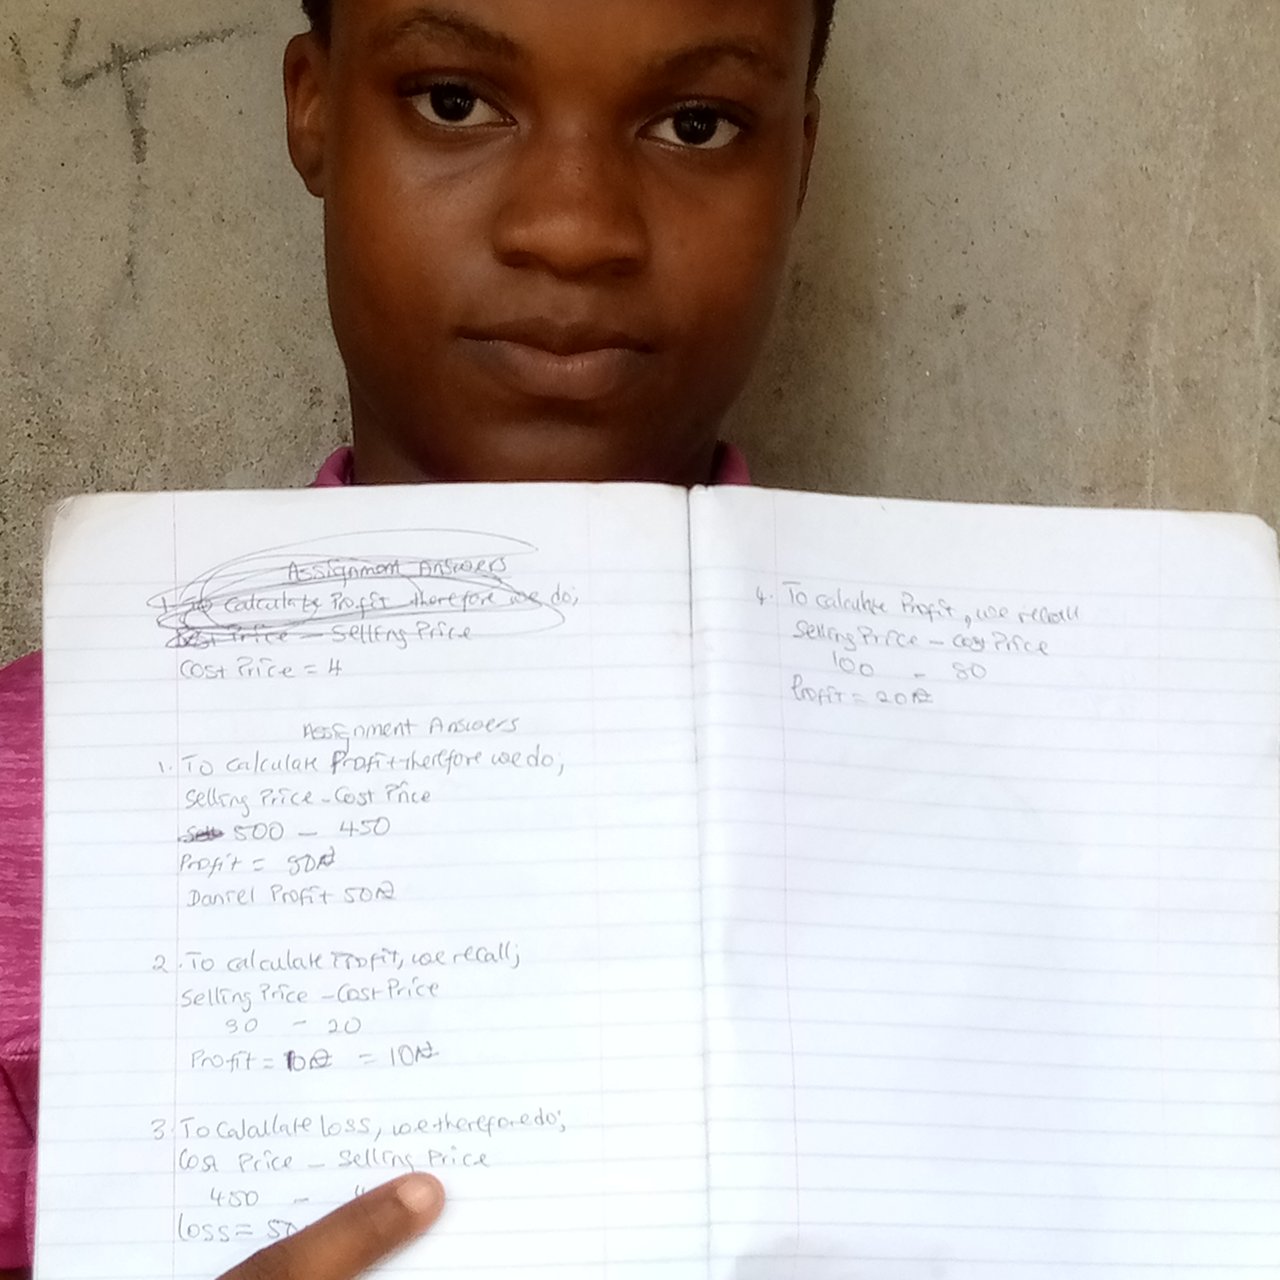 Assignment Answers
1. To Calculate Profit therefore we do;
Price – Selling Price
Cost Price = 4
Assignment Answers
1. To calculate Profit therefore we do;
Selling Price - Cost Price
500 – 450
Profit = 50₦
Daniel Profit 50₦
2. To calculate Profit, we recall;
Selling Price – Cost Price
30 – 20
Profit = 10₦ = 10₦
3. To Calculate loss, we therefore do;
Cost Price – Selling Price
450 – 4
loss = 50
4. To calculate Profit, we recall
Selling Price – Cost Price
100 – 80
Profit = 20₦